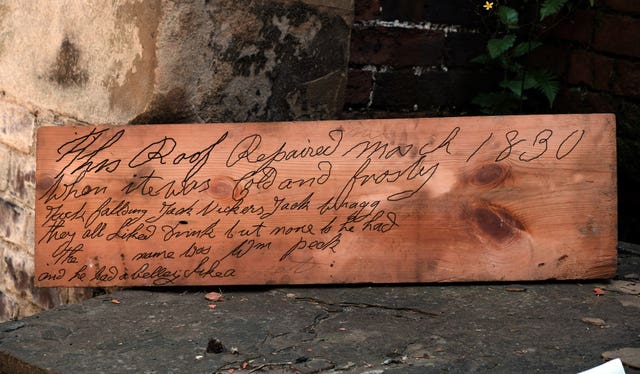 This Roof Repaired march 1830
when it was Cold and frosty
Jack Vickers Jack Wragg
they all Liked Drink but none to be had
the name was Wm peek
and he had a belley Like a